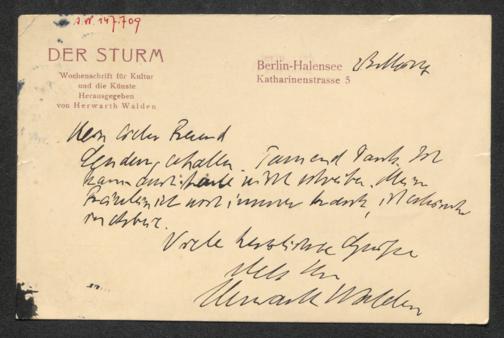 I.N. 147.709
DER STURM
Wochenschrift für Kultur
und die Künste
Herausgegeben
von Herwarth Walden
Berlin-Halensee
Katharinenstrasse 5
Mein lieber Freund
Sendung erhalten. Tausend Dank. Ich
kann heute nicht schreiben. Mein
ist noch immer krank, ich
Viele herzlichste Grüße
stets Ihr
Herwarth Walden